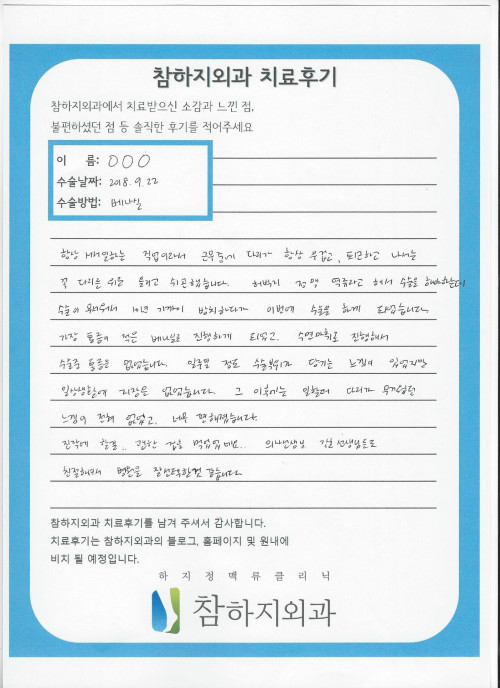 참하지외과 치료후기
참하지외과에서 치료받으신 소감과 느낀 점,
불편하셨던 점 등 솔직한 후기를 적어주세요
이 름: OOO
수술날짜: 2018. 9. 22
수술방법: 베나실
항상 서서일하는 직업이라서 근무중에 다리가 항상 무겁고, 퇴근하고 나서는
꼭 다리를 위로 올리고 쉬곤했습니다. 허벅지 정맥 역류라고 해서 수술을 해야하는데
수술이 무서워서 10년 가까이 방치하다가 이번에 수술을 하게 되었습니다.
가장 통증이 적은 베나실로 진행하게 되었고, 수면마취로 진행해서
수술중 통증은 없었습니다. 일주일 정도 수술부위가 당기는 느낌이 있었지만
일상생활에 지장은 없었습니다. 그 이후에는 일할때 다리가 무거웠던
느낌이 전혀 없었고, 너무 편해졌습니다.
진작에 할걸.. 괜한 겁을 먹었었네요.. 의사선생님 간호선생님들도
친절하셔서 병원을 잘선택한것 같습니다.
참하지외과 치료후기를 남겨 주셔서 감사합니다.
치료후기는 참하지외과의 블로그, 홈페이지 및 원내에
비치 될 예정입니다.
하지정맥류클리닉
참하지외과